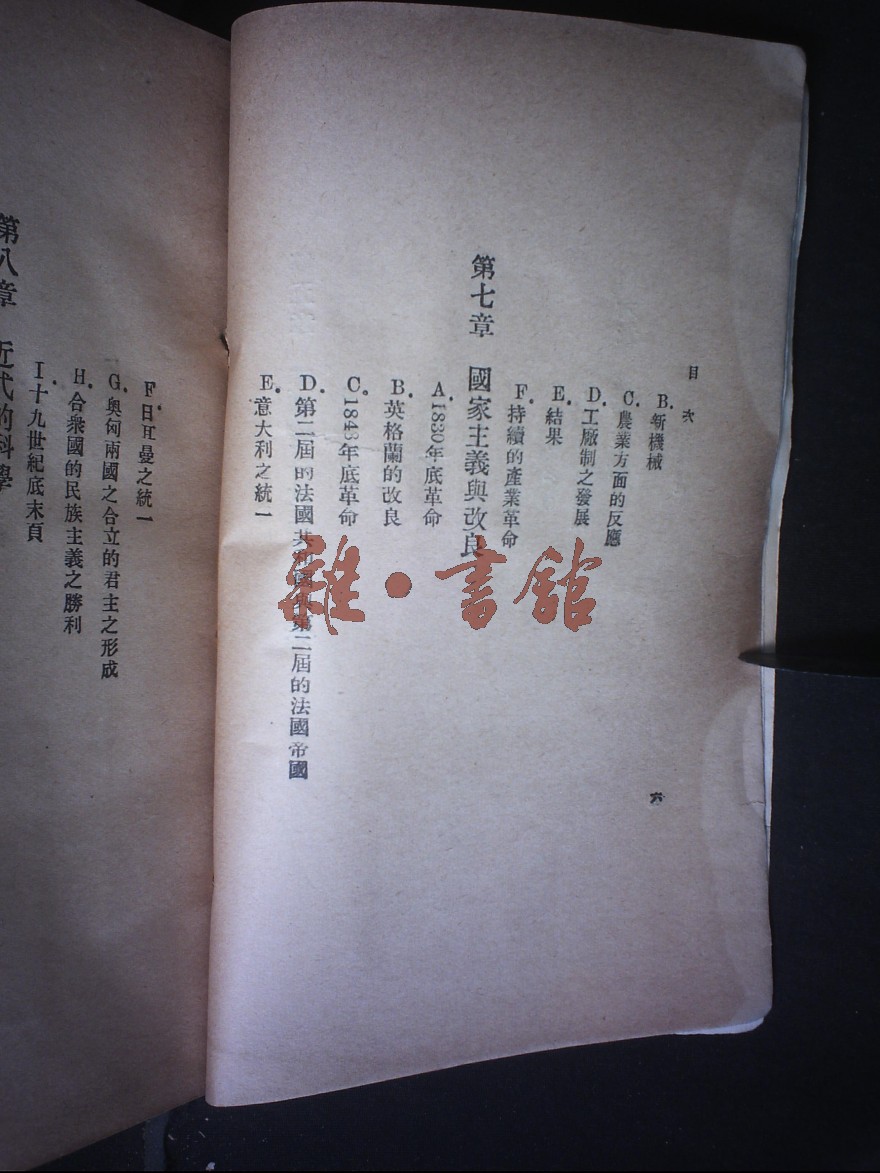 目次
B. 新機械
C. 農業方面的反應
D. 工廠制之發展
E. 結果
F. 持續的產業革命
第七章 國家主義與改良
A. 1830年底革命
B. 英格蘭的改良
C. 1848年底革命
D. 第二屆的法國共和國與第二屆的法國帝國
E. 意大利之統一
六
F. 日耳曼之統一
G. 奧匈兩國之合立的君主之形成
H. 合衆國的民族主義之勝利
I. 十九世紀底末頁
第八章 近代的科學
雜·書館